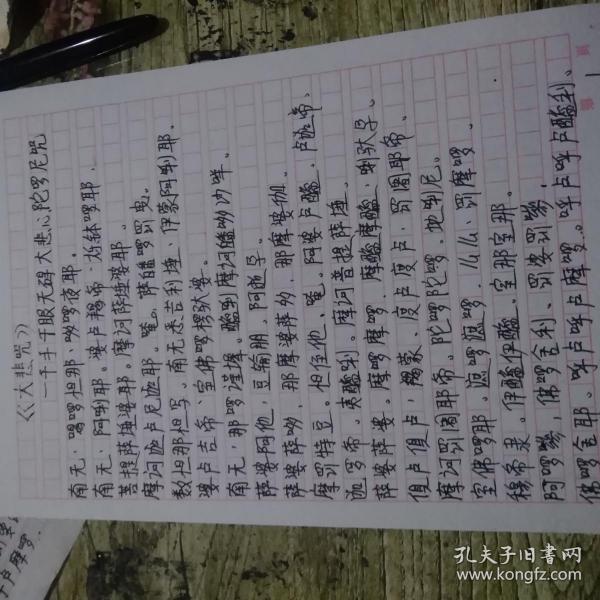 《大悲咒》
千手千眼无碍大悲心陀罗尼咒
南无·喝啰怛那·哆啰夜耶.
南无·阿唎耶。婆卢羯帝·烁钵啰耶.
菩提萨埵婆耶。摩诃萨埵婆耶。
摩诃迦卢尼迦耶。唵。萨皤啰罚曳。
数怛那怛写。南无悉吉利埵·伊蒙阿唎耶.
婆卢吉帝·室佛啰楞驮婆。
南无·那啰谨墀。醯唎摩诃皤哆沙咩。
萨婆阿他·豆输朋·阿逝孕。
萨婆萨哆·那摩婆萨哆·那摩婆伽。
摩罚特豆。怛侄他·唵。阿婆卢醯·卢迦帝.
迦罗帝。夷醯唎。摩诃菩提萨埵。
萨婆萨婆。摩啰摩啰·摩醯摩醯·唎驮孕。
俱卢俱卢·羯蒙·度卢度卢·罚阇耶帝.
摩诃罚阇耶帝。陀啰陀啰·地唎尼。
室佛啰耶。遮啰遮啰·么么·罚摩啰。
穆帝隶。伊醯伊醯。室那室那.
阿啰嘇·佛啰舍利。罚娑罚嘇·
佛啰舍耶。呼卢呼卢摩啰。呼卢呼卢醯利。
卢摩啰.
孔夫子旧书网
www.kongfz.com